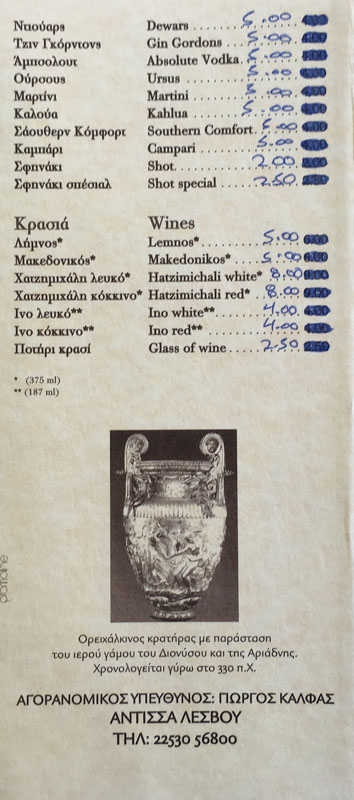 Ντιούαρς Dewars ........ 5.00
Τζιν Γκόρντονς Gin Gordons ..... 5.00
Άμπσολουτ Absolute Vodka. 5.00
Ούρσους Ursus .......... 5.00
Μαρτίνι Martini ......... 5.00
Καλούα Kahlua ......... 5.00
Σάουθερν Κόμφορτ Southern Comfort. 5.00
Καμπάρι Campari ........ 5.00
Σφηνάκι Shot. ........... 2.00
Σφηνάκι σπέσιαλ Shot special ..... 2.50
Κρασιά Wines
Λήμνος* Lemnos* ........ 5.00
Μακεδονικός* Makedonikos* .... 5.00
Χατζημιχάλη λευκό* Hatzimichali white* 8.00
Χατζημιχάλη κόκκινο* Hatzimichali red* . 8.00
Ινο λευκό** Ino white** ...... 4.00
Ινο κόκκινο** Ino red** ........ 4.00
Ποτήρι κρασί Glass of wine .... 2.50
* (375 ml)
** (187 ml)
Ορειχάλκινος κρατήρας με παράσταση
του ιερού γάμου του Διονύσου και της Αριάδνης.
Χρονολογείται γύρω στο 330 π.Χ.
ΑΓΟΡΑΝΟΜΙΚΟΣ ΥΠΕΥΘΥΝΟΣ: ΓΙΩΡΓΟΣ ΚΑΛΦΑΣ
ΑΝΤΙΣΣΑ ΛΕΣΒΟΥ
ΤΗΛ: 22530 56800